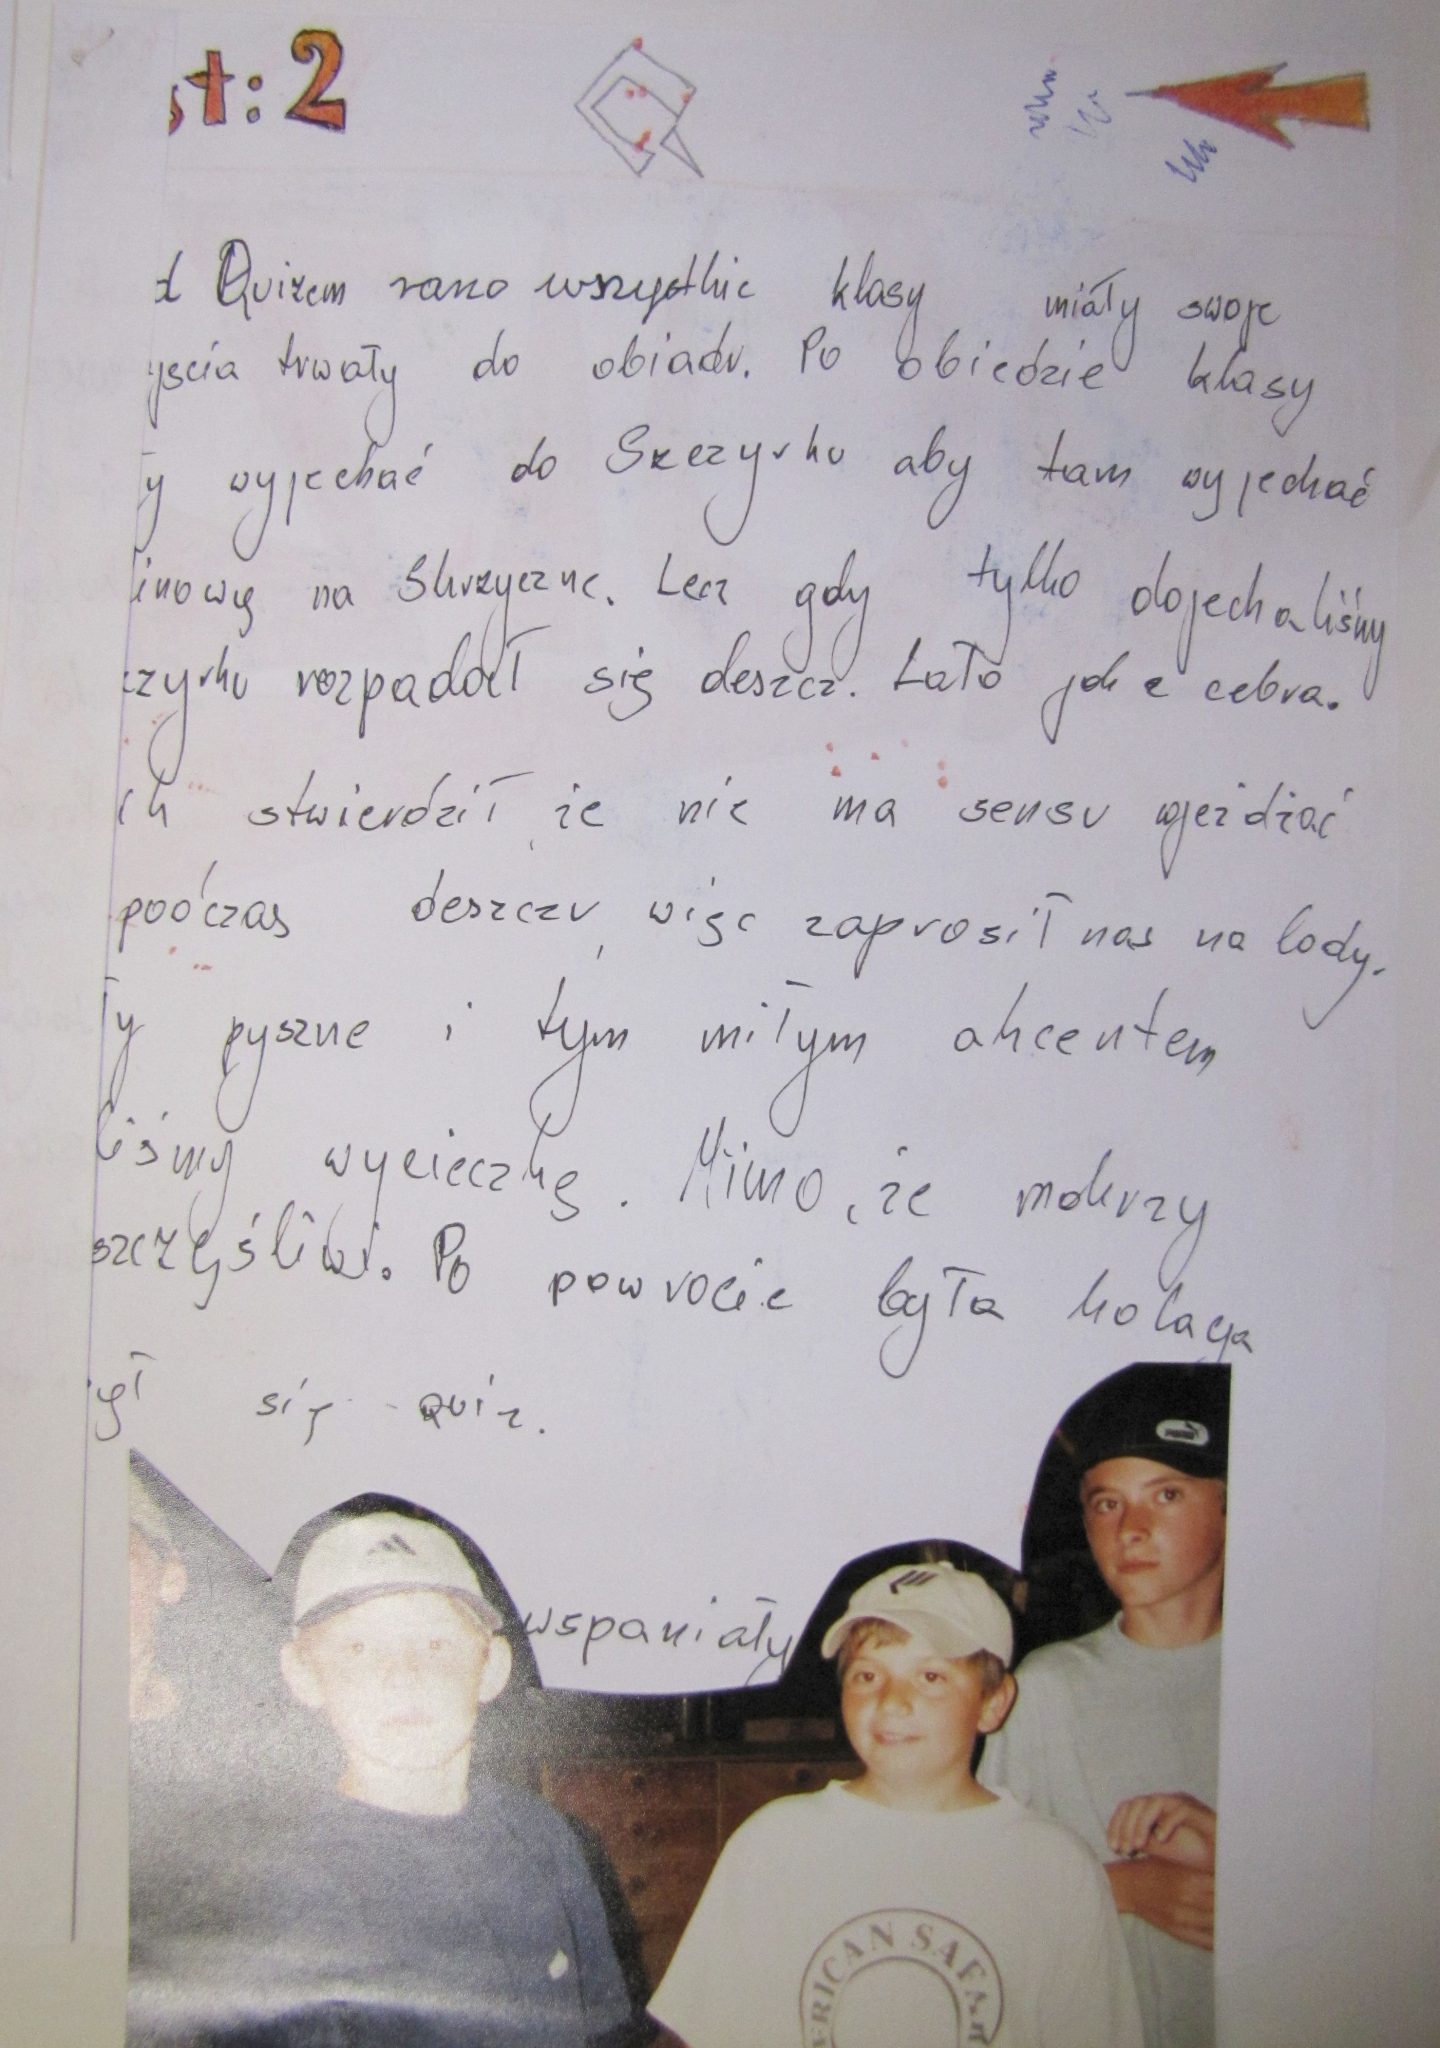 st: 2
d Quizem rano wszystkie klasy miały swoje
yscia trwały do obiadu. Po obiedzie klasy
y wyjechać do Szczyrku aby tam wyjechać
linową na Skrzyczne. Lecz gdy tylko dojechaliśmy
czyrku rozpadał się deszcz. Lało jak z cebra.
ch stwierdził, że nie ma sensu wjeżdżać
podczas deszczu, więc zaprosił nas na lody.
ły pyszne i tym miłym akcentem
liśmy wycieczkę. Mimo, że mokrzy
szczęśliwi. Po powrocie była kolacja
ął się quiz.
PUMA
wspaniały
ERICAN SAFAR